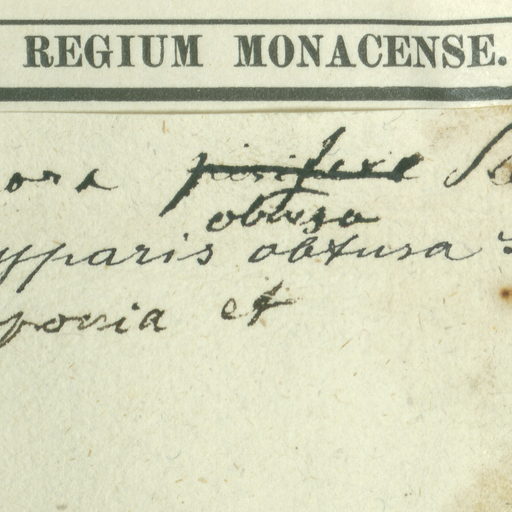 REGIUM MONACENSE.
ora pisifera S
obtusa
yparis obtusa
ponia et